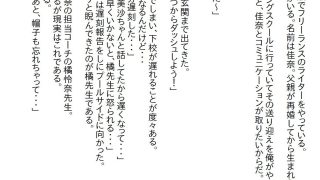 でフリーランスのライターをやっている。
いる。名前は佳奈。父親が再婚してから生まれ
ングスクールに行っていてその送り迎えを俺がや
と、佳奈とコミュニケーションが取りたいからだ。
て～」
玄関まで出てきた。
つからダッシュしよう！」
てしまい、下校が遅れることが度々ある。
なるんだけど・・・
遅刻した・・・」
美沙ちゃんと話してたから遅くなって・・・」
早くいかないと、橘先生に怒られる・・・」
は遅刻報告をしにプールサイドに向かった。
と睨んできたのが橘先生
奈の担当コーチの橘怜奈先生。
るが現実はこれである。
あと、帽子も忘れちゃって・・・」